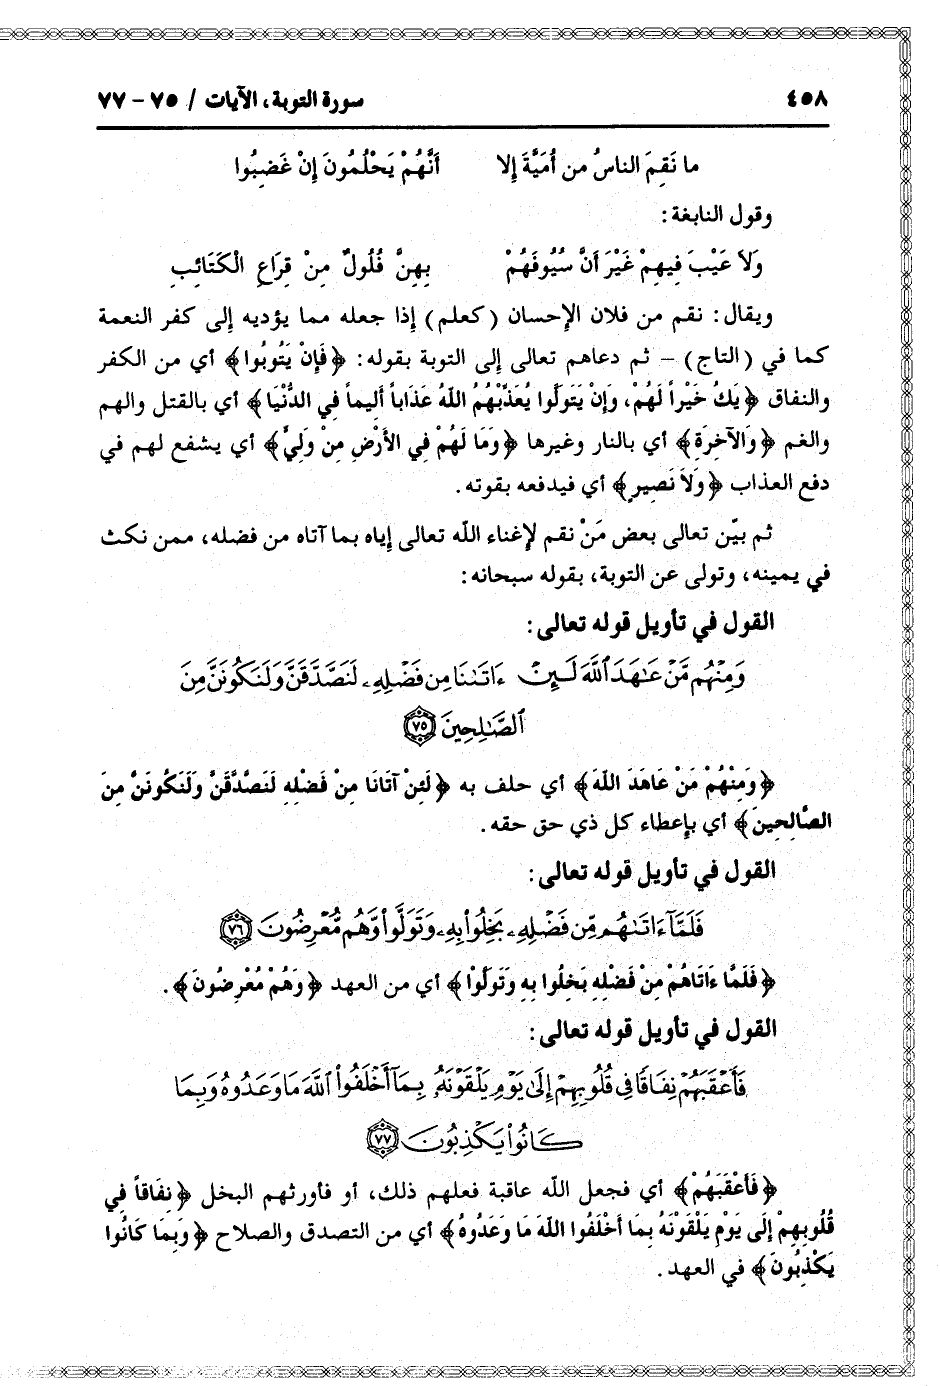 ٤٥٨ سورة التوبة، الآيات / ٧٥ - ٧٧
ما نَقِمَ الناسُ من أُمَيَّةَ إلا أَنَّهُمْ يَحْلُمُونَ إنْ غَضِبُوا
وقول النابغة:
وَلاَ عَيْبَ فِيهِمْ غَيْرَ أَنَّ سُيُوفَهُمْ بِهِنَّ فُلُولٌ مِنْ قِرَاعِ الْكَتَائِبِ
ويقال: نقم من فلان الإحسان (كعلم) إذا جعله مما يؤديه إلى كفر النعمة
كما في (التاج) - ثم دعاهم تعالى إلى التوبة بقوله: ﴿فَإِنْ يَتُوبُوا﴾ أي من الكفر
والنفاق ﴿يَكُ خَيْراً لَهُمْ، وَإِنْ يَتَوَلَّوا يُعَذِّبْهُمُ اللّهُ عَذَاباً أَلِيماً فِي الدُّنْيَا﴾ أي بالقتل والهم
والغم ﴿وَالآخِرَةِ﴾ أي بالنار وغيرها ﴿وَمَا لَهُمْ فِي الأَرْضِ مِنْ وَلِيٍّ﴾ أي يشفع لهم في
دفع العذاب ﴿وَلاَ نَصِيرٍ﴾ أي فيدفعه بقوته.
ثم بيّن تعالى بعض مَنْ نقم لإغناء اللّه تعالى إياه بما آتاه من فضله، ممن نكث
في يمينه، وتولى عن التوبة، بقوله سبحانه:
القول في تأويل قوله تعالى:
وَمِنْهُم مَّنْ عَٰهَدَ ٱللَّهَ لَئِنْ ءَاتَىٰنَا مِن فَضْلِهِۦ لَنَصَّدَّقَنَّ وَلَنَكُونَنَّ مِنَ
ٱلصَّٰلِحِينَ ٧٥
﴿وَمِنْهُمْ مَنْ عَاهَدَ اللّهَ﴾ أي حلف به ﴿لَئِنْ آتَانَا مِنْ فَضْلِهِ لَنَصَّدَّقَنَّ وَلَنَكُونَنَّ مِنَ
الصَّالِحِينَ﴾ أي بإعطاء كل ذي حق حقه.
القول في تأويل قوله تعالى:
فَلَمَّآ ءَاتَىٰهُم مِّن فَضْلِهِۦ بَخِلُوا۟ بِهِۦ وَتَوَلَّوا۟ وَّهُم مُّعْرِضُونَ ٧٦
﴿فَلَمَّا ءَاتَاهُمْ مِنْ فَضْلِهِ بَخِلُوا بِهِ وَتَوَلَّوْا﴾ أي من العهد ﴿وَهُمْ مُعْرِضُونَ﴾.
القول في تأويل قوله تعالى:
فَأَعْقَبَهُمْ نِفَاقًا فِى قُلُوبِهِمْ إِلَىٰ يَوْمِ يَلْقَوْنَهُۥ بِمَآ أَخْلَفُوا۟ ٱللَّهَ مَا وَعَدُوهُ وَبِمَا
كَانُوا۟ يَكْذِبُونَ ٧٧
﴿فَأَعْقَبَهُمْ﴾ أي فجعل اللّه عاقبة فعلهم ذلك، أو فأورثهم البخل ﴿نِفَاقاً فِي
قُلُوبِهِمْ إِلَى يَوْمِ يَلْقَوْنَهُ بِمَا أَخْلَفُوا اللّهَ مَا وَعَدُوهُ﴾ أي من التصدق والصلاح ﴿وَبِمَا كَانُوا
يَكْذِبُونَ﴾ في العهد.